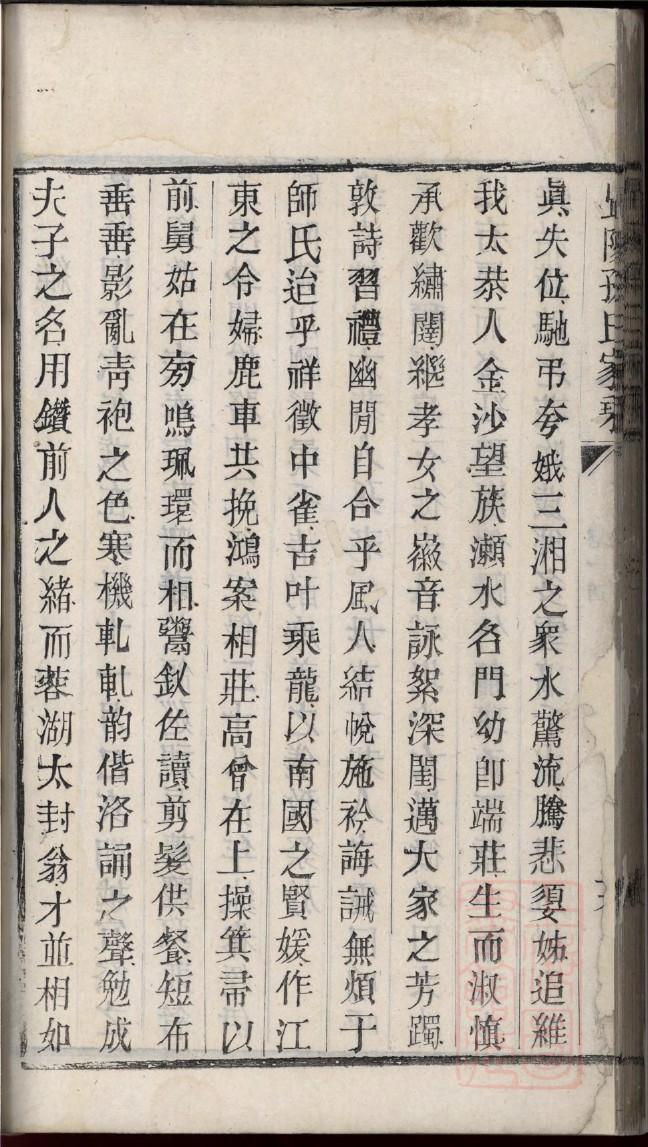 陽孫氏家乘
眞失位馳弔夸娥三湘之衆水驚流騰悲嬃姊追維
我太恭人金沙望族瀬水名門幼卽端莊生而淑愼
承歡繡闥繼孝女之徽音詠絮深閨邁大家之芳躅
敦詩習禮幽閒自合乎風人結帨施衿誨誡無煩于
師氏迨乎祥徵中雀吉叶乘龍以南國之賢媛作江
東之令婦鹿車共挽鴻案相莊高曾在上操箕帚以
前舅姑在旁鳴珮環而相鬻釵佐讀剪髮供餐短布
垂垂影亂靑袍之色寒機軋軋韵偕洛誦之聲勉成
夫子之名用鑽前人之緒而蓉湖太封翁才並相如